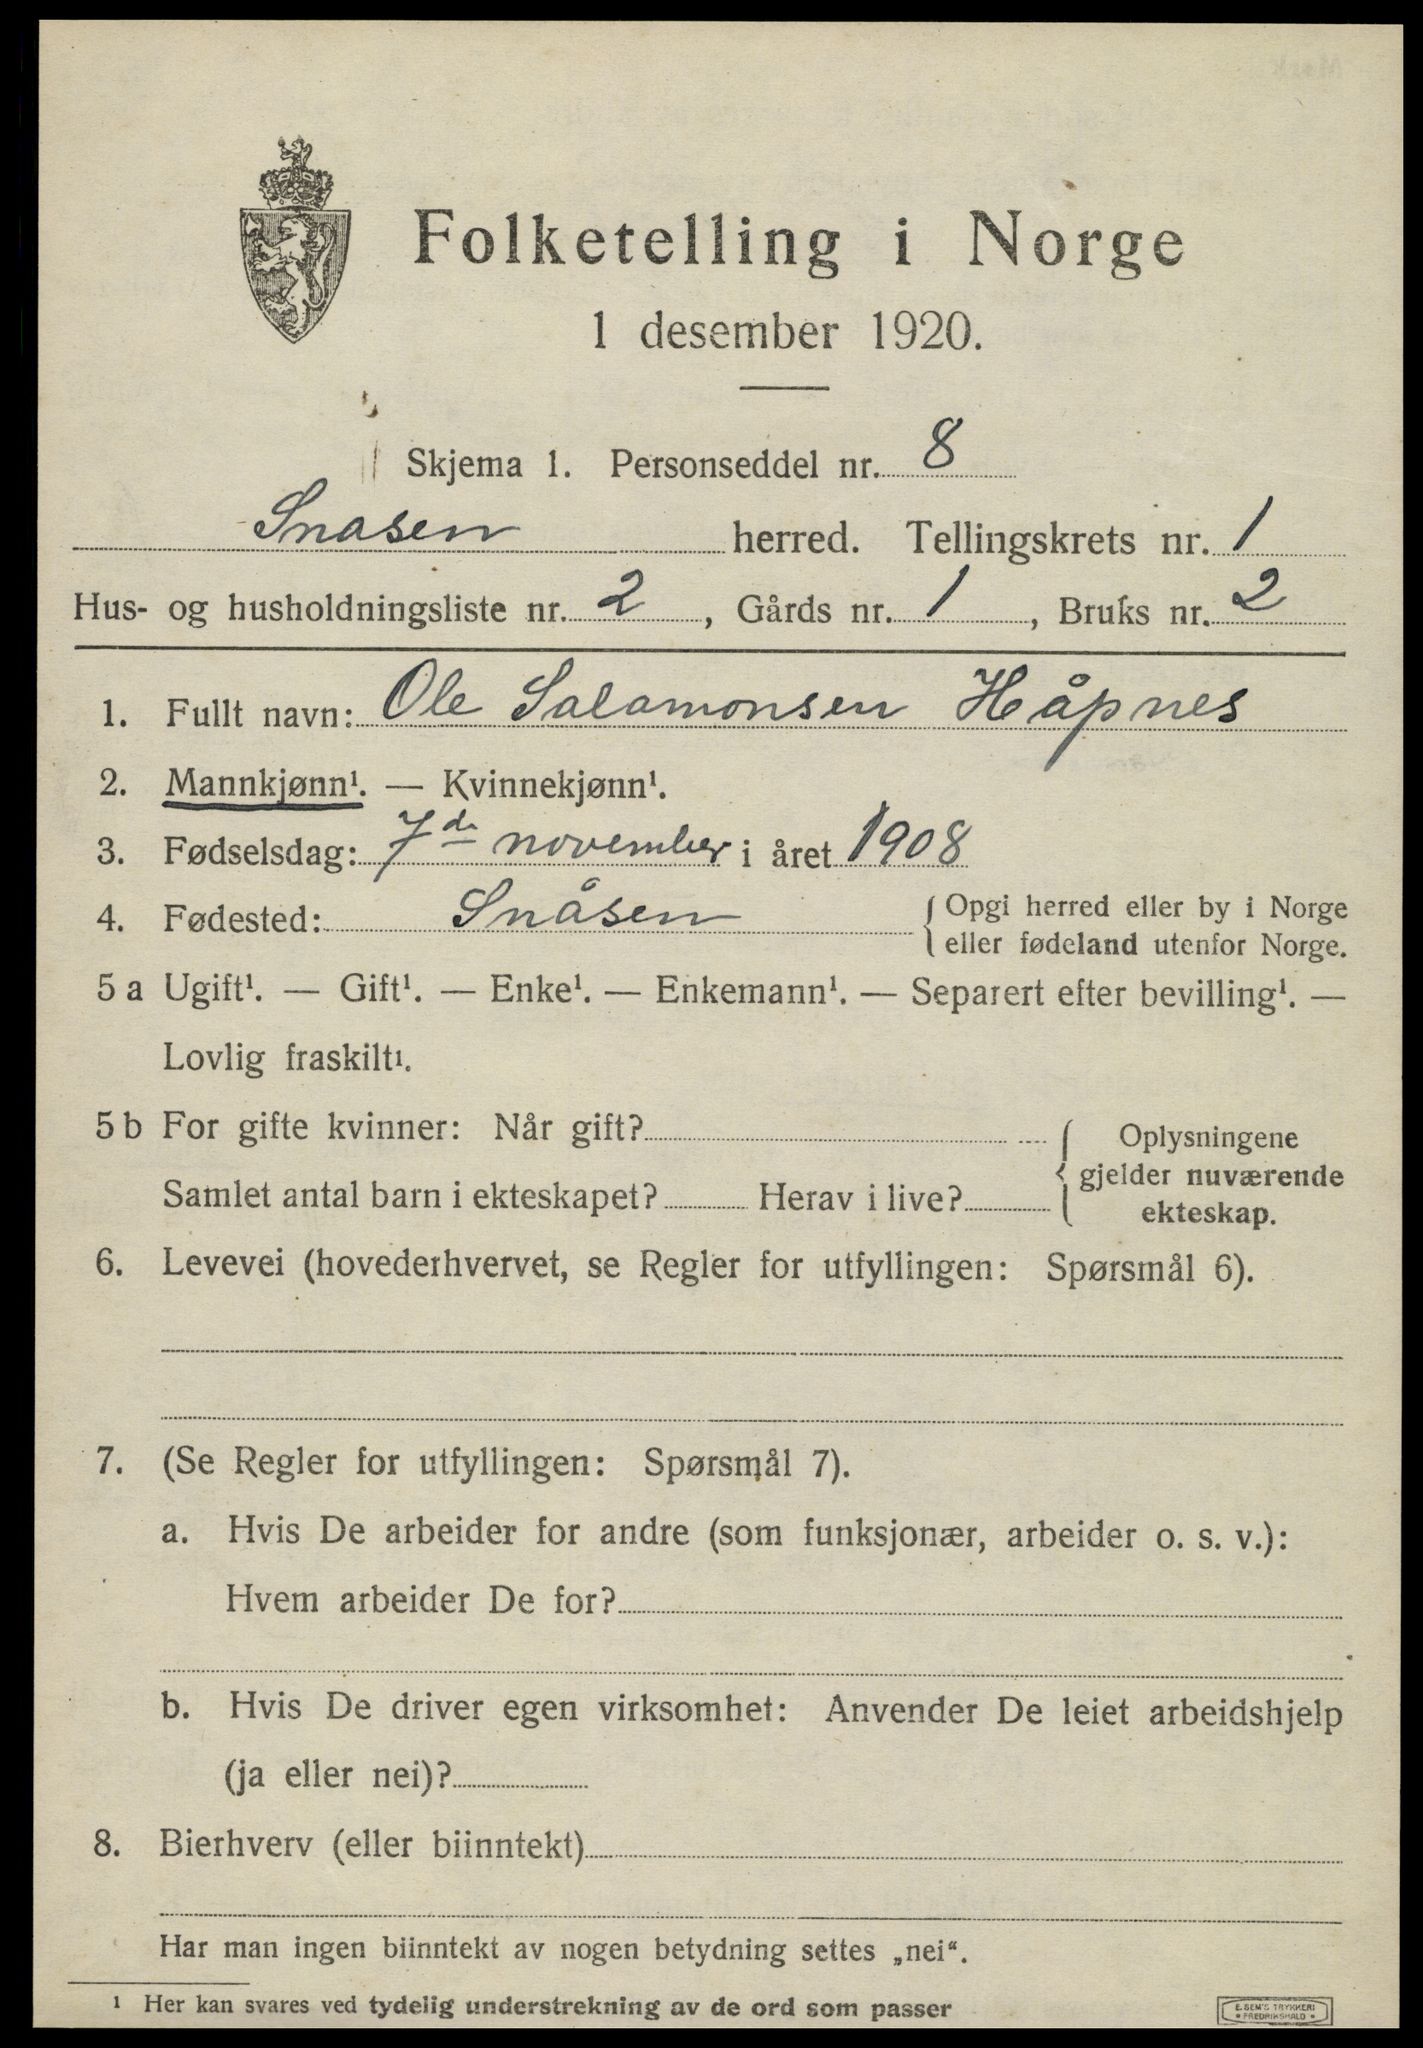 Folketelling i Norge
1 desember 1920.
Skjema 1. Personseddel nr. 8
Snasen herred. Tellingskrets nr. 1
Hus- og husholdningsliste nr. 2, Gårds nr. 1, Bruks nr. 2
1. Fullt navn: Ole Salamonsen Håpnes
2. Mannkjønn¹. — Kvinnekjønn¹.
3. Fødselsdag: 7de november i året 1908
4. Fødested: Snåsen { Opgi herred eller by i Norge
eller fødeland utenfor Norge.
5 a Ugift¹. — Gift¹. — Enke¹. — Enkemann¹. — Separert efter bevilling¹. —
Lovlig fraskilt¹.
5 b For gifte kvinner: Når gift? { Oplysningene
gjelder nuværende
Samlet antal barn i ekteskapet? Herav i live? ekteskap.
6. Levevei (hovederhvervet, se Regler for utfyllingen: Spørsmål 6).
7. (Se Regler for utfyllingen: Spørsmål 7).
a. Hvis De arbeider for andre (som funksjonær, arbeider o. s. v.):
Hvem arbeider De for?
b. Hvis De driver egen virksomhet: Anvender De leiet arbeidshjelp
(ja eller nei)?
8. Bierhverv (eller biinntekt)
Har man ingen biinntekt av nogen betydning settes „nei“.
¹ Her kan svares ved tydelig understrekning av de ord som passer
E. SEM'S TRYKKERI
• FREDRIKSHALD •